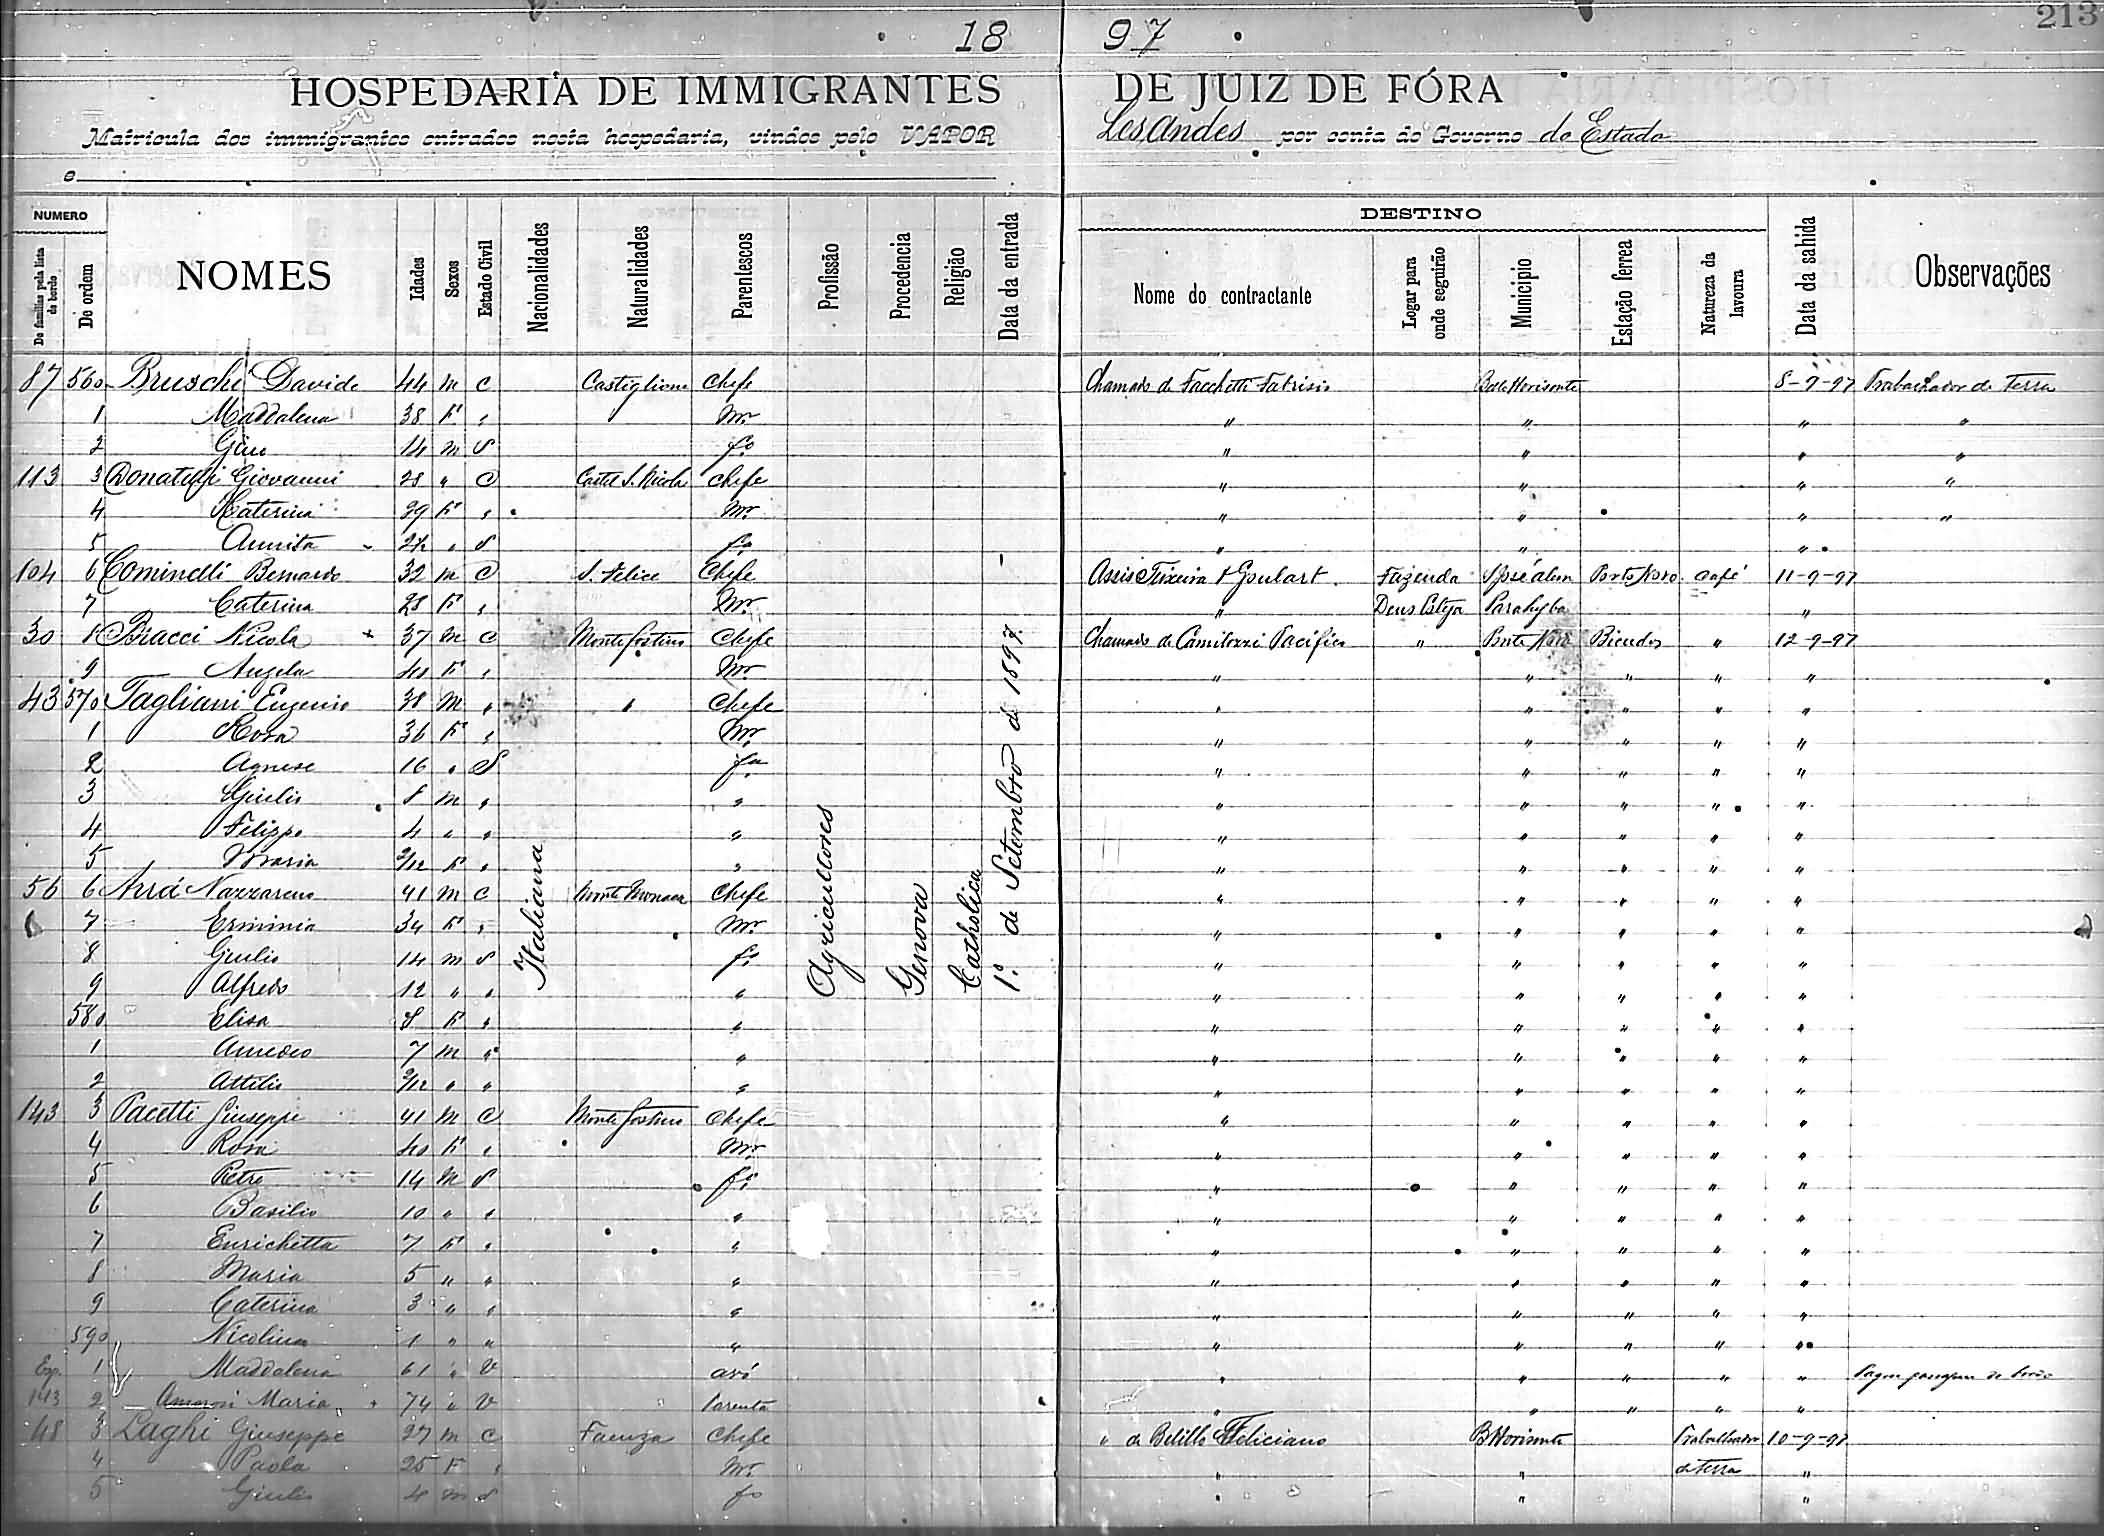 213
18 97
HOSPEDARIA DE IMMIGRANTES DE JUIZ DE FÓRA
Matricula dos immigrantes entrados nesta hospedaria, vindos pelo VAPOR Les Andes por conta do Governo do Estado
e
NUMERO DESTINO
De familias pela lista de bordo De ordem NOMES Idades Sexos Estado Civil Nacionalidades Naturalidades Parentescos Profissão Procedencia Religião Data da entrada Nome do contractante Logar para onde seguirão Municipio Estação ferrea Natureza da lavoura Data da sahida Observações
87 560 Bruschi Davide 44 m C Castiglione Chefe Chamado de Facchetti Fabrisio Bello Horisonte 8-9-97 Trabalhador de Terra
1 Maddalena 38 F " Mr. " " " "
2 Gino 14 m S fo " " " "
113 3 Giovanni 28 " C Castel S. Nicola Chefe " " " "
4 Caterina 29 F " Mr. " " " "
5 Annita S fa " " "
104 6 Cominelli Bernardo 32 m C S. Felice Chefe Assis Teixeira & Goulart. Fazenda S José alem Porto Novo café 11-9-97
7 Caterina 28 F " Mr. " Deus Esteja Parahyba "
30 8 Bracci Nicola 37 m C Montefortino Chefe Chamado de Camilozzi Pacifico " Ponte Nova Bicudos " 12-9-97
9 Angela 40 F " Mr. " " " " "
43 570 Tagliani Eugenio 38 m " " Chefe " " " " "
1 Rosa 36 F " Mr. " " " " "
2 Agnese 16 " S fa " " " " "
3 Giulio 8 m " " " " " " "
4 Felippo 4 " " " " " " " "
5 Maria F " " " " " " "
56 6 Nazzareno 41 m C Monte Monaco Chefe " " " " "
7 Erminia 34 F " Mr. " " " " "
8 Giulio 14 m S fo " " " " "
9 Alfredo 12 " " " " " " " "
580 Elisa 8 F " " " " " " "
1 Amedeo 7 m " " " " " " "
2 Attilio " " " " " " " "
143 3 Pacetti Giuseppe 41 m C Montefortino Chefe " " " " "
4 Rosa 40 F " Mr. " " " " "
5 Petro 14 m S fo " " " " "
6 Basilio 10 " " " " " " " "
7 Enrichetta 7 F " " " " " " "
8 Maria 5 " " " " " " " "
9 Caterina 3 " " " " " " " "
590 Nicolina 1 " " " " " " " "
Esp. 1 Maddalena 61 " V avó " " " " "
143 2 Maria 74 " V Parenta " " " " "
48 3 Laghi Giuseppe 27 m C Faenza Chefe " de Belillo Feliciano B Horisonte Trabalhador 10-9-97
4 Paola 25 F " Mr. " " de terra "
5 Giulio 4 m S fo " " "
Italiana
Agricultores
Genova
Catholica
1º de Setembro d 1897